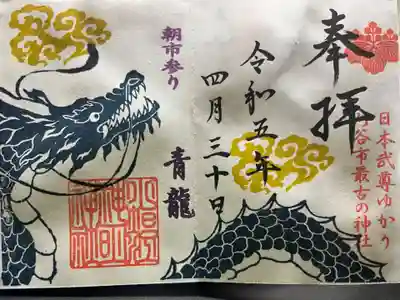 奉拝
日本武尊ゆかり
谷市最古の神社
令和五年
四月三十日
朝市参り
青龍